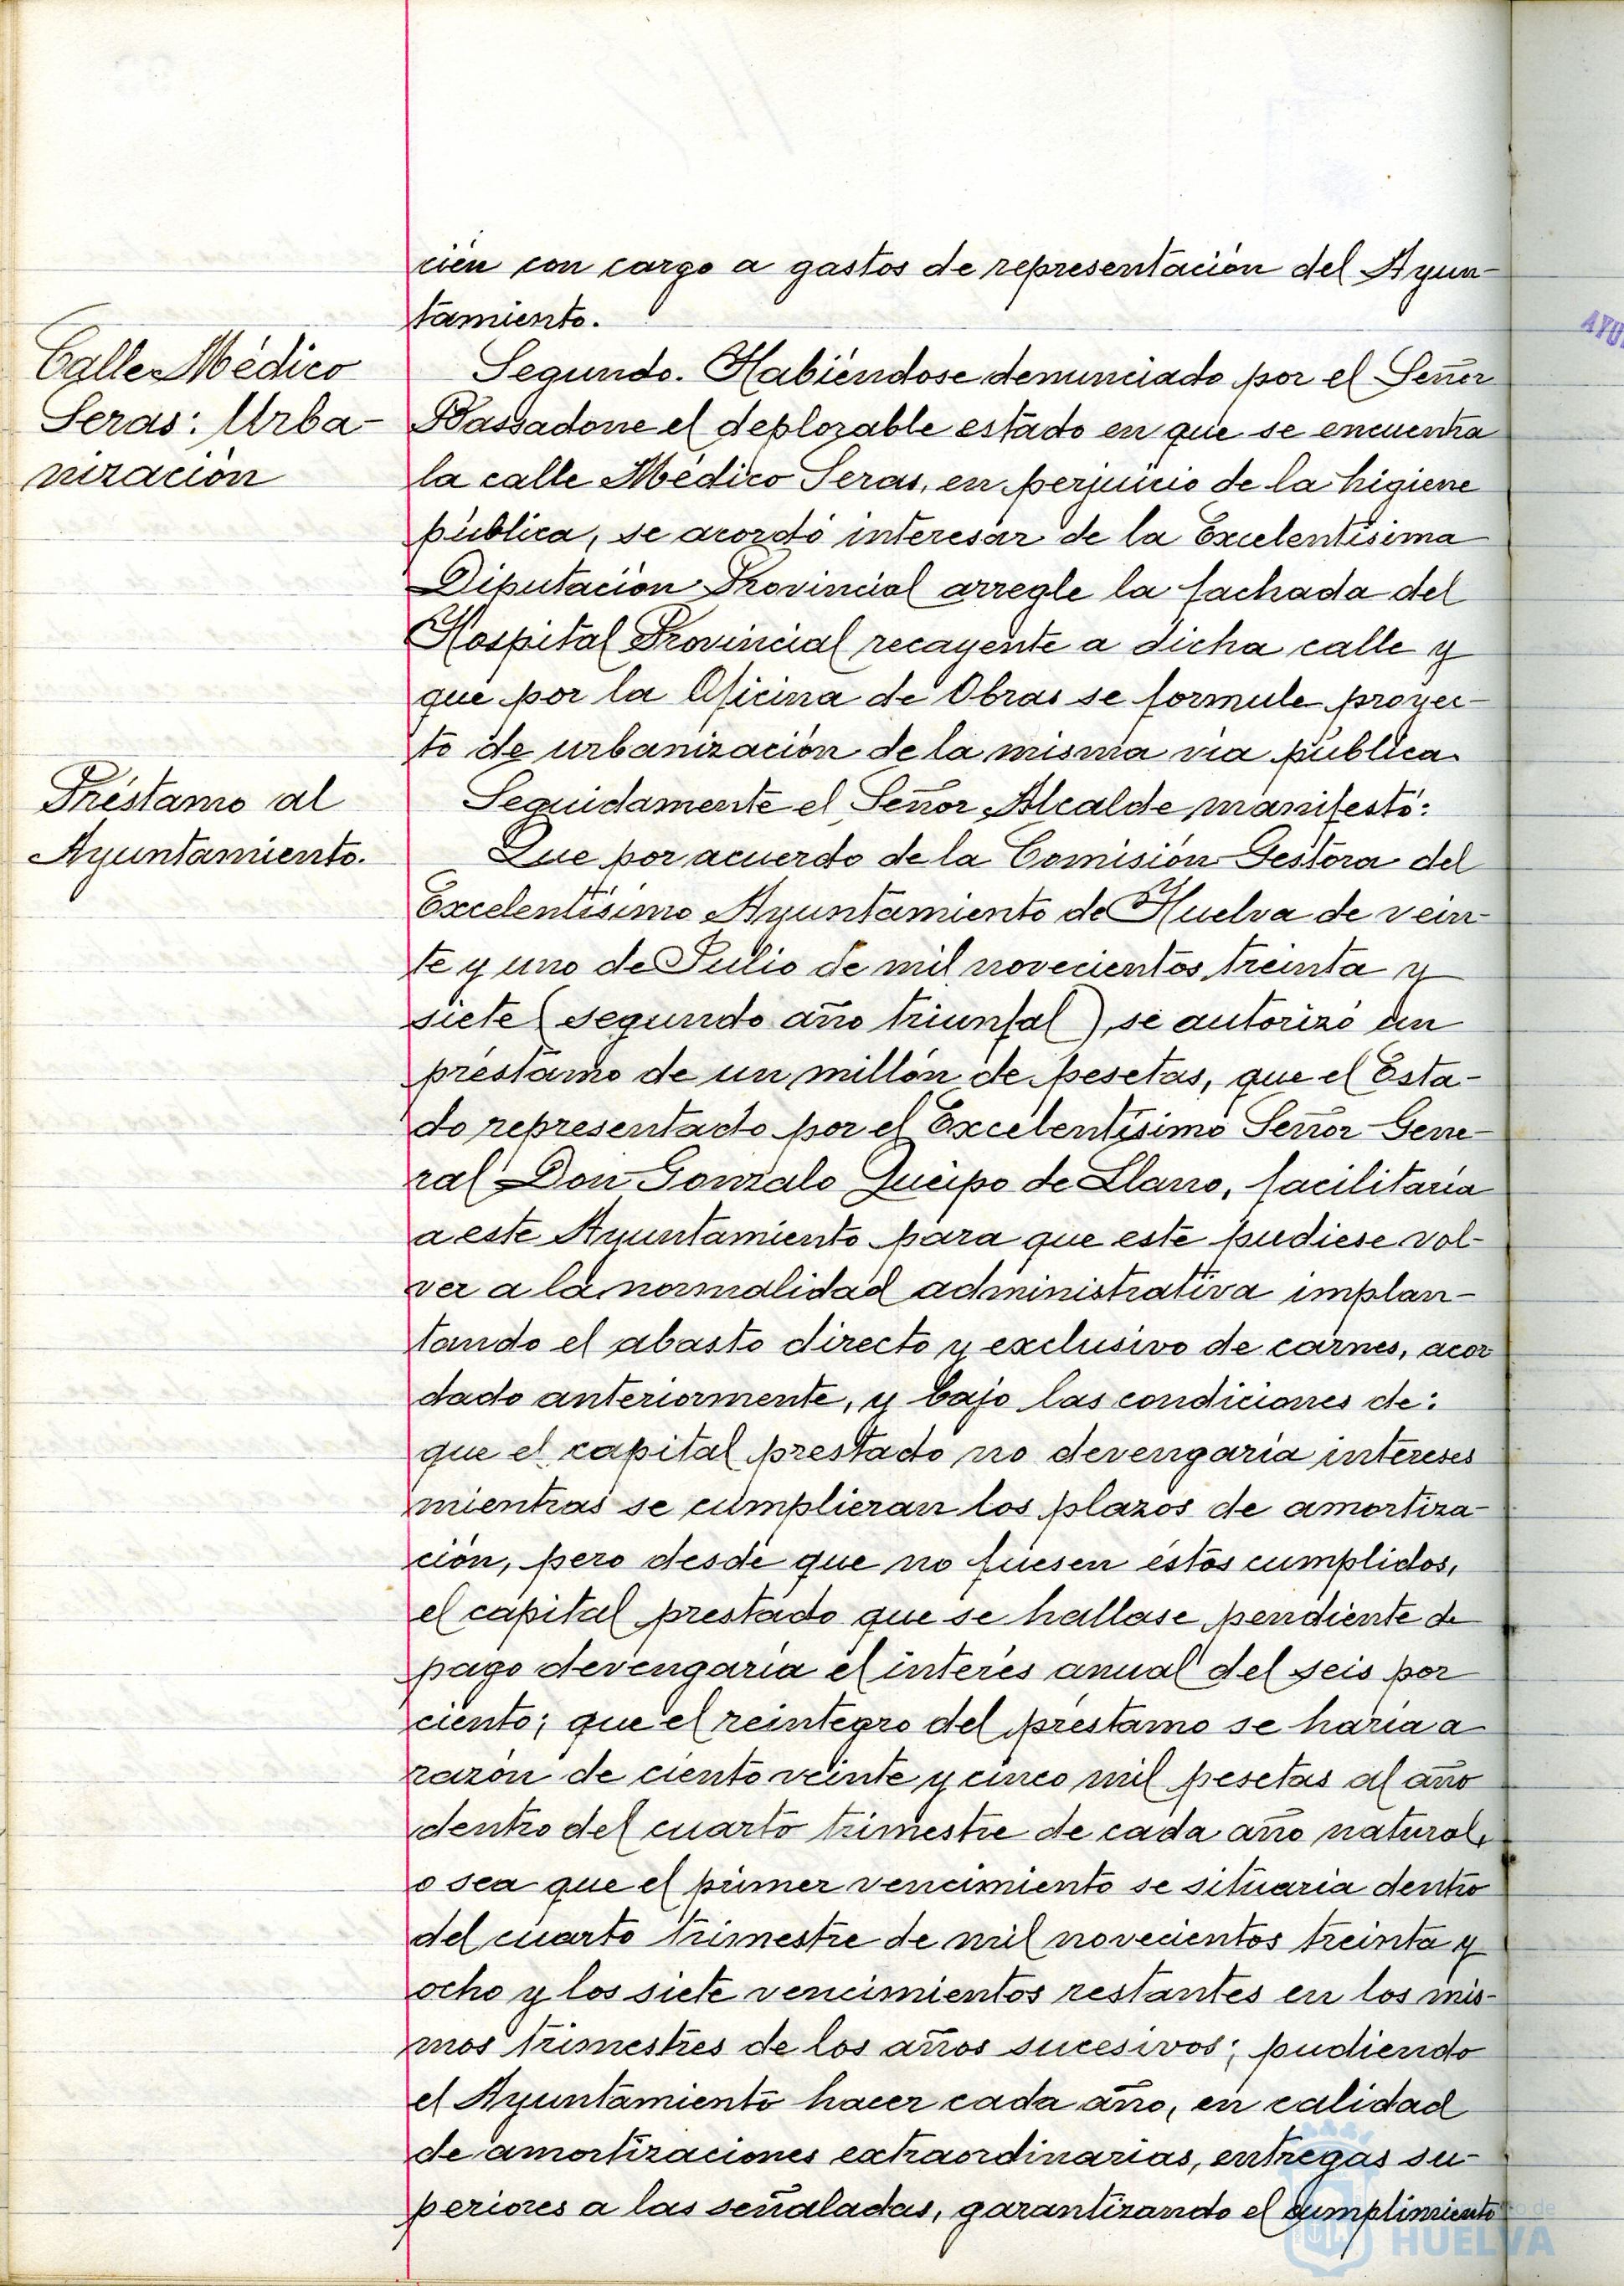 ción con cargo a gastos de representación del Ayun-
tamiento.
Calle Médico
Seras: Urba-
nización
Segundo. Habiéndose denunciado por el Señor
Bassadone el deplorable estado en que se encuentra
la calle Médico Seras, en perjuicio de la higiene
pública, se acordó interesar de la Excelentísima
Diputación Provincial arregle la fachada del
Hospital Provincial recayente a dicha calle y
que por la Oficina de Obras se formule proyec-
to de urbanización de la misma vía pública.
Préstamo al
Ayuntamiento.
Seguidamente el Señor Alcalde manifestó:
Que por acuerdo de la Comisión Gestora del
Excelentísimo Ayuntamiento de Huelva de vein-
te y uno de Julio de mil novecientos treinta y
siete (segundo año triunfal), se autorizó un
préstamo de un millón de pesetas, que el Esta-
do representado por el Excelentísimo Señor Gene-
ral Don Gonzalo Queipo de Llano, facilitaría
a este Ayuntamiento para que este pudiese vol-
ver a la normalidad administrativa implan-
tando el abasto directo y exclusivo de carnes, acor
dado anteriormente, y bajo las condiciones de:
que el capital prestado no devengaría intereses
mientras se cumplieran los plazos de amortiza-
ción, pero desde que no fuesen éstos cumplidos,
el capital prestado que se hallase pendiente de
pago devengaría el interés anual del seis por
ciento; que el reintegro del préstamo se haría a
razón de ciento veinte y cinco mil pesetas al año
dentro del cuarto trimestre de cada año natural,
o sea que el primer vencimiento se situaría dentro
del cuarto trimestre de mil novecientos treinta y
ocho y los siete vencimientos restantes en los mis-
mos trimestres de los años sucesivos; pudiendo
el Ayuntamiento hacer cada año, en calidad
de amortizaciones extraordinarias, entregas su-
periores a las señaladas, garantizando el cumplimiento
HUELVA